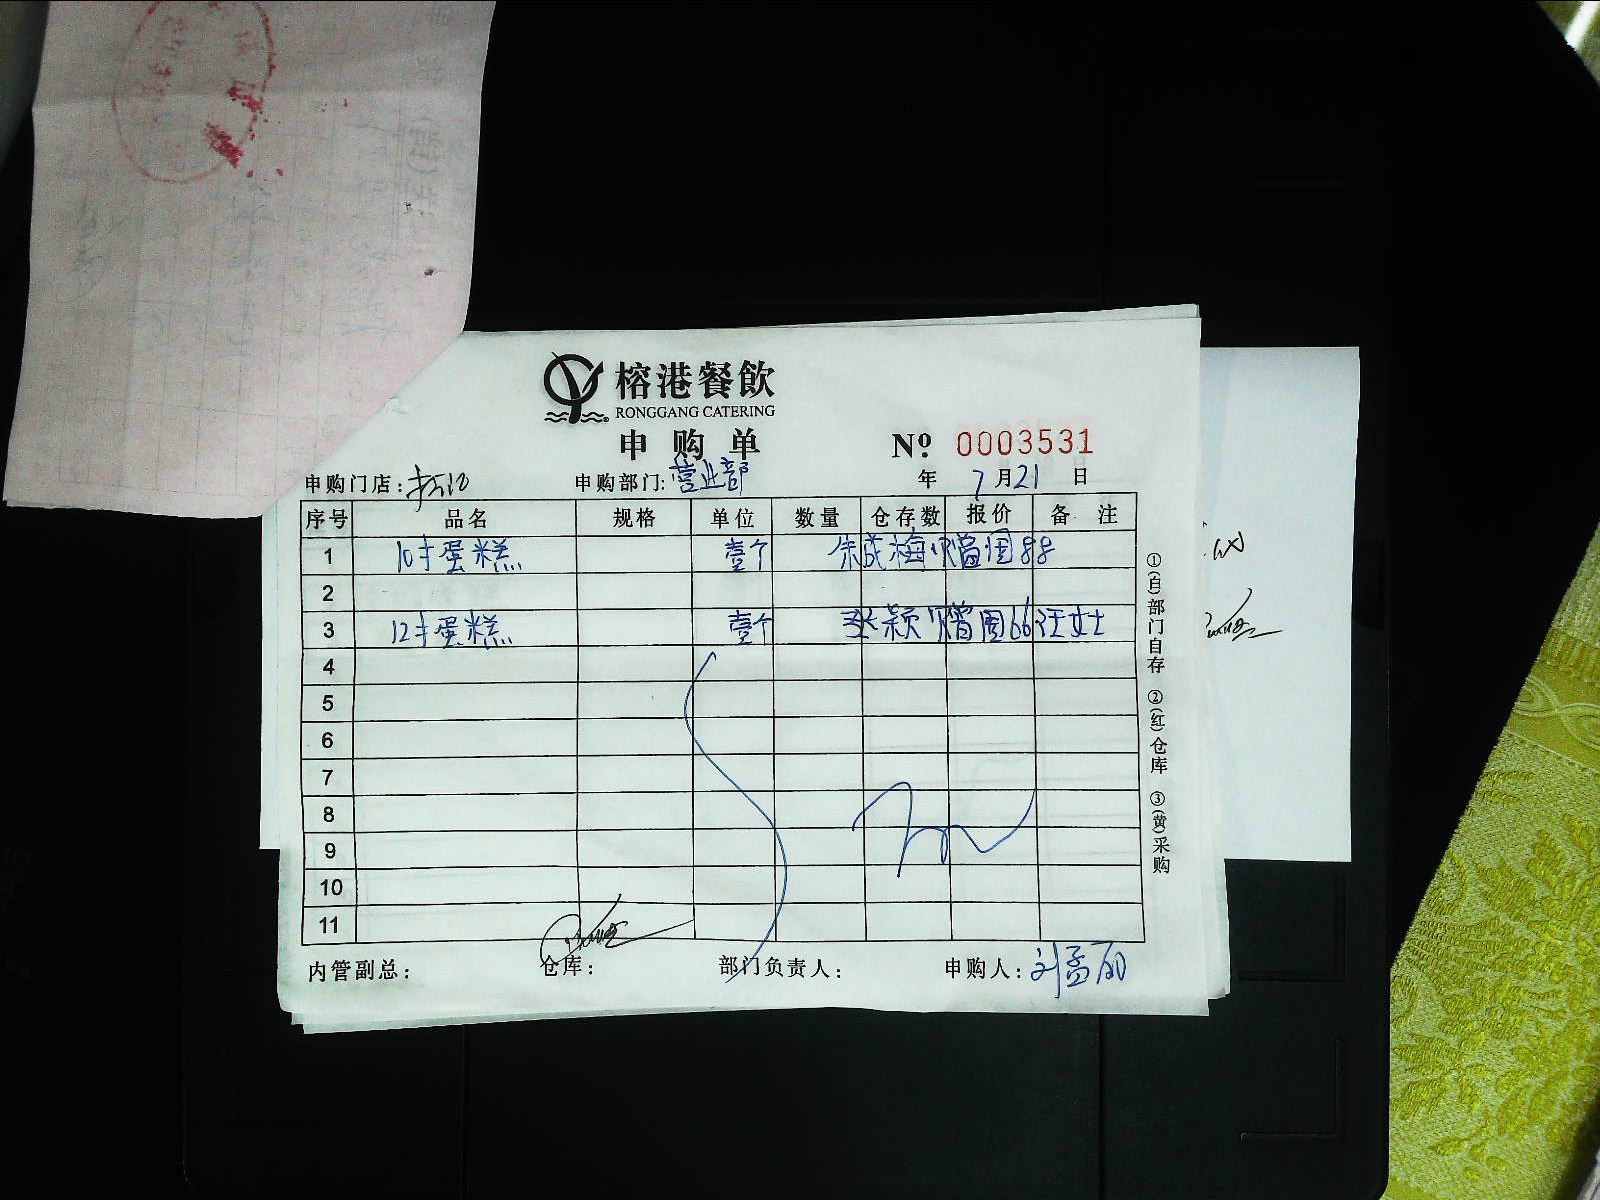 榕港餐飲
RONGGANG CATERING
申购单 Nº 0003531
申购门店: 申购部门:营业部 年 7月21日
序号 品名 规格 单位 数量 仓存数 报价 备注
1 10寸蛋糕 壹个 朱成梅 88
2
3 12寸蛋糕 壹个 张颖 66汪女士
4
5
6
7
8
9
10
11
内管副总: 仓库: 部门负责人: 申购人:刘孟丽
①(白)部门自存 ②(红)仓库 ③(黄)采购